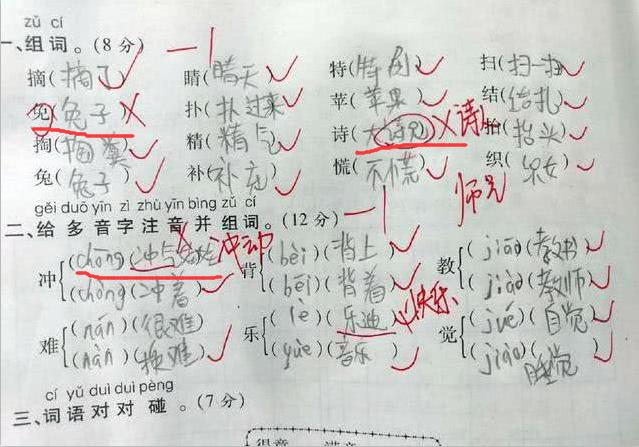 zǔ cí
一、组词。(8分) 一1
摘(摘了) 睛(晴天) 特(特别) 扫(扫一扫)
兔(兔子) 扑(扑过来) 苹(苹果) 结(结扎)
掏(掏粪) 精(精气) 诗(大诗兄) 诗 抬(抬头)
兔(兔子) 补(补充) 慌(不慌) 织(织女)
师兄
gěi duō yīn zì zhù yīn bìng zǔ cí
二、给多音字注音并组词。(12分) 一1
冲 (chōng)(冲气) 冲动 背 (bēi)(背上) 教 (jiāo)(教书)
(chòng)(冲着) (bēi)(背着) (jiào)(教师)
难 (nán)(很难) 乐 (lè)(乐迪) 快乐 觉 (jué)(自觉)
(nàn)(难) (yuè)(音乐) (jiào)(睡觉)
cí yǔ duì duì pèng
三、词语对对碰。(7分)
得意 满意